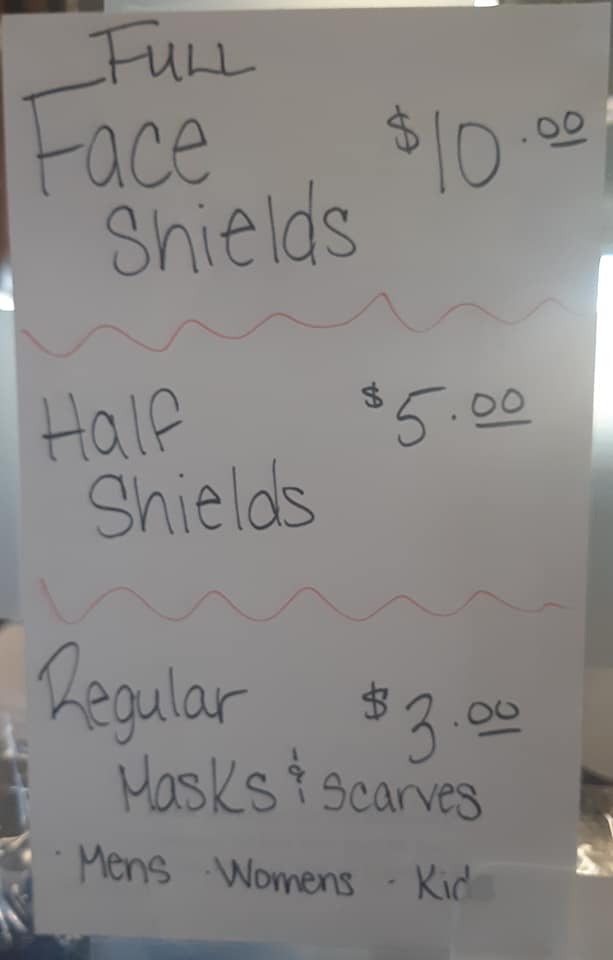 FULL
Face $10.00
Shields
Half $5.00
Shields
Regular $3.00
Masks & Scarves
· Mens · Womens · Kid